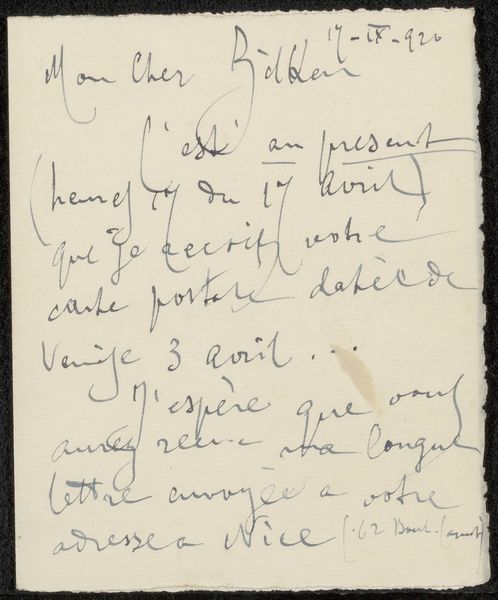 17-IX-920
Mon Cher
C'est au present
(heures 17 du 17 avril)
que je recois votre
carte postale datée de
Venise 3 avril ...
J'espère que vous
aurez recu ma longue
lettre envoyée a votre
adresse a Nice (62 Boul. Carnot)